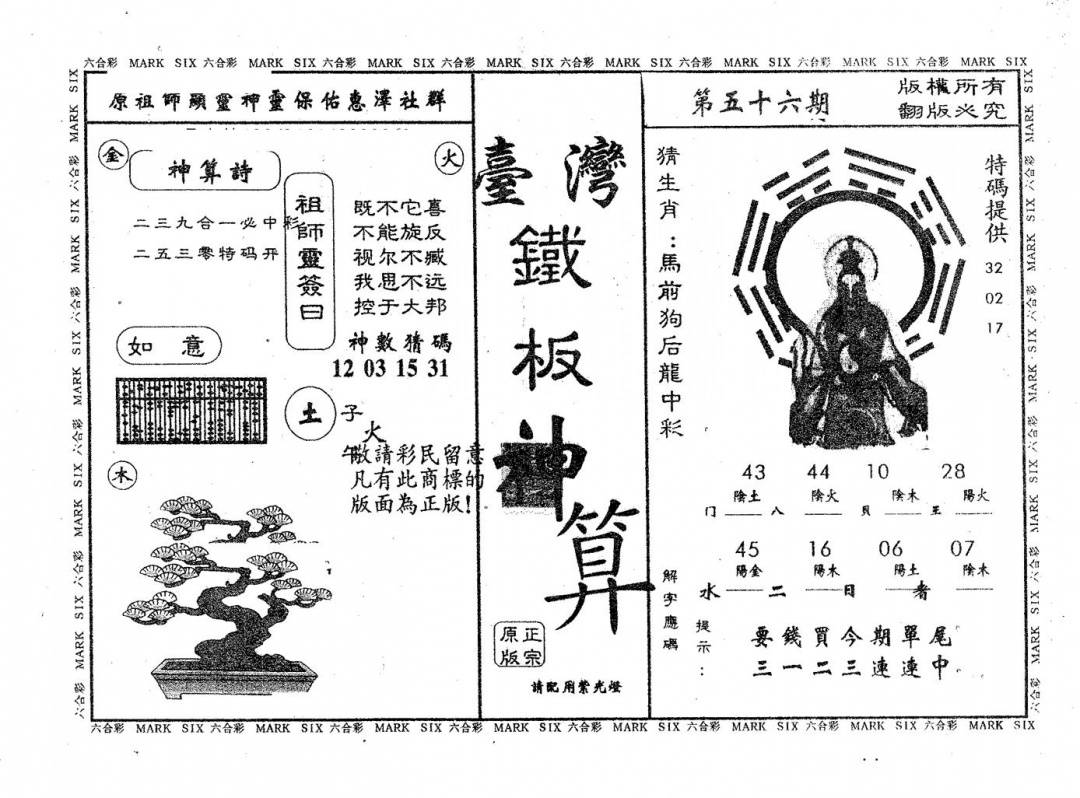 六合彩 MARK SIX 六合彩 MARK SIX 六合彩 MARK SIX 六合彩 MARK SIX 六合彩 MARK SIX 六合彩 MARK SIX 六合彩 MARK SIX 六合彩 MARK SIX
原祖師顯靈神靈保佑惠澤社群
金
神算詩
火
二三九合一必中彩
二五三零特码开
祖師靈簽曰
既不它喜
不能旋反
视尔不臧
我思不远
控于大邦
神數猜碼
12 03 15 31
如意
土
子
火
午
敬請彩民留意
凡有此商標的
版面為正版!
木
臺灣
鐵板神算
正宗
原版
請配用紫光燈
第五十六期
版權所有
翻版必究
猜生肖:馬前狗后龍中彩
特碼提供
32
02
17
43 44 10 28
陰土 陰火 陰木 陽火
门 八 貝 王
45 16 06 07
陽金 陽木 陽土 陰木
水 二 日 者
解字應碼
提示:
要錢買今期單尾
三一二三連連中。
六合彩 MARK SIX 六合彩 MARK SIX 六合彩 MARK SIX 六合彩 MARK SIX 六合彩 MARK SIX 六合彩 MARK SIX 六合彩 MARK SIX 六合彩 MARK SIX